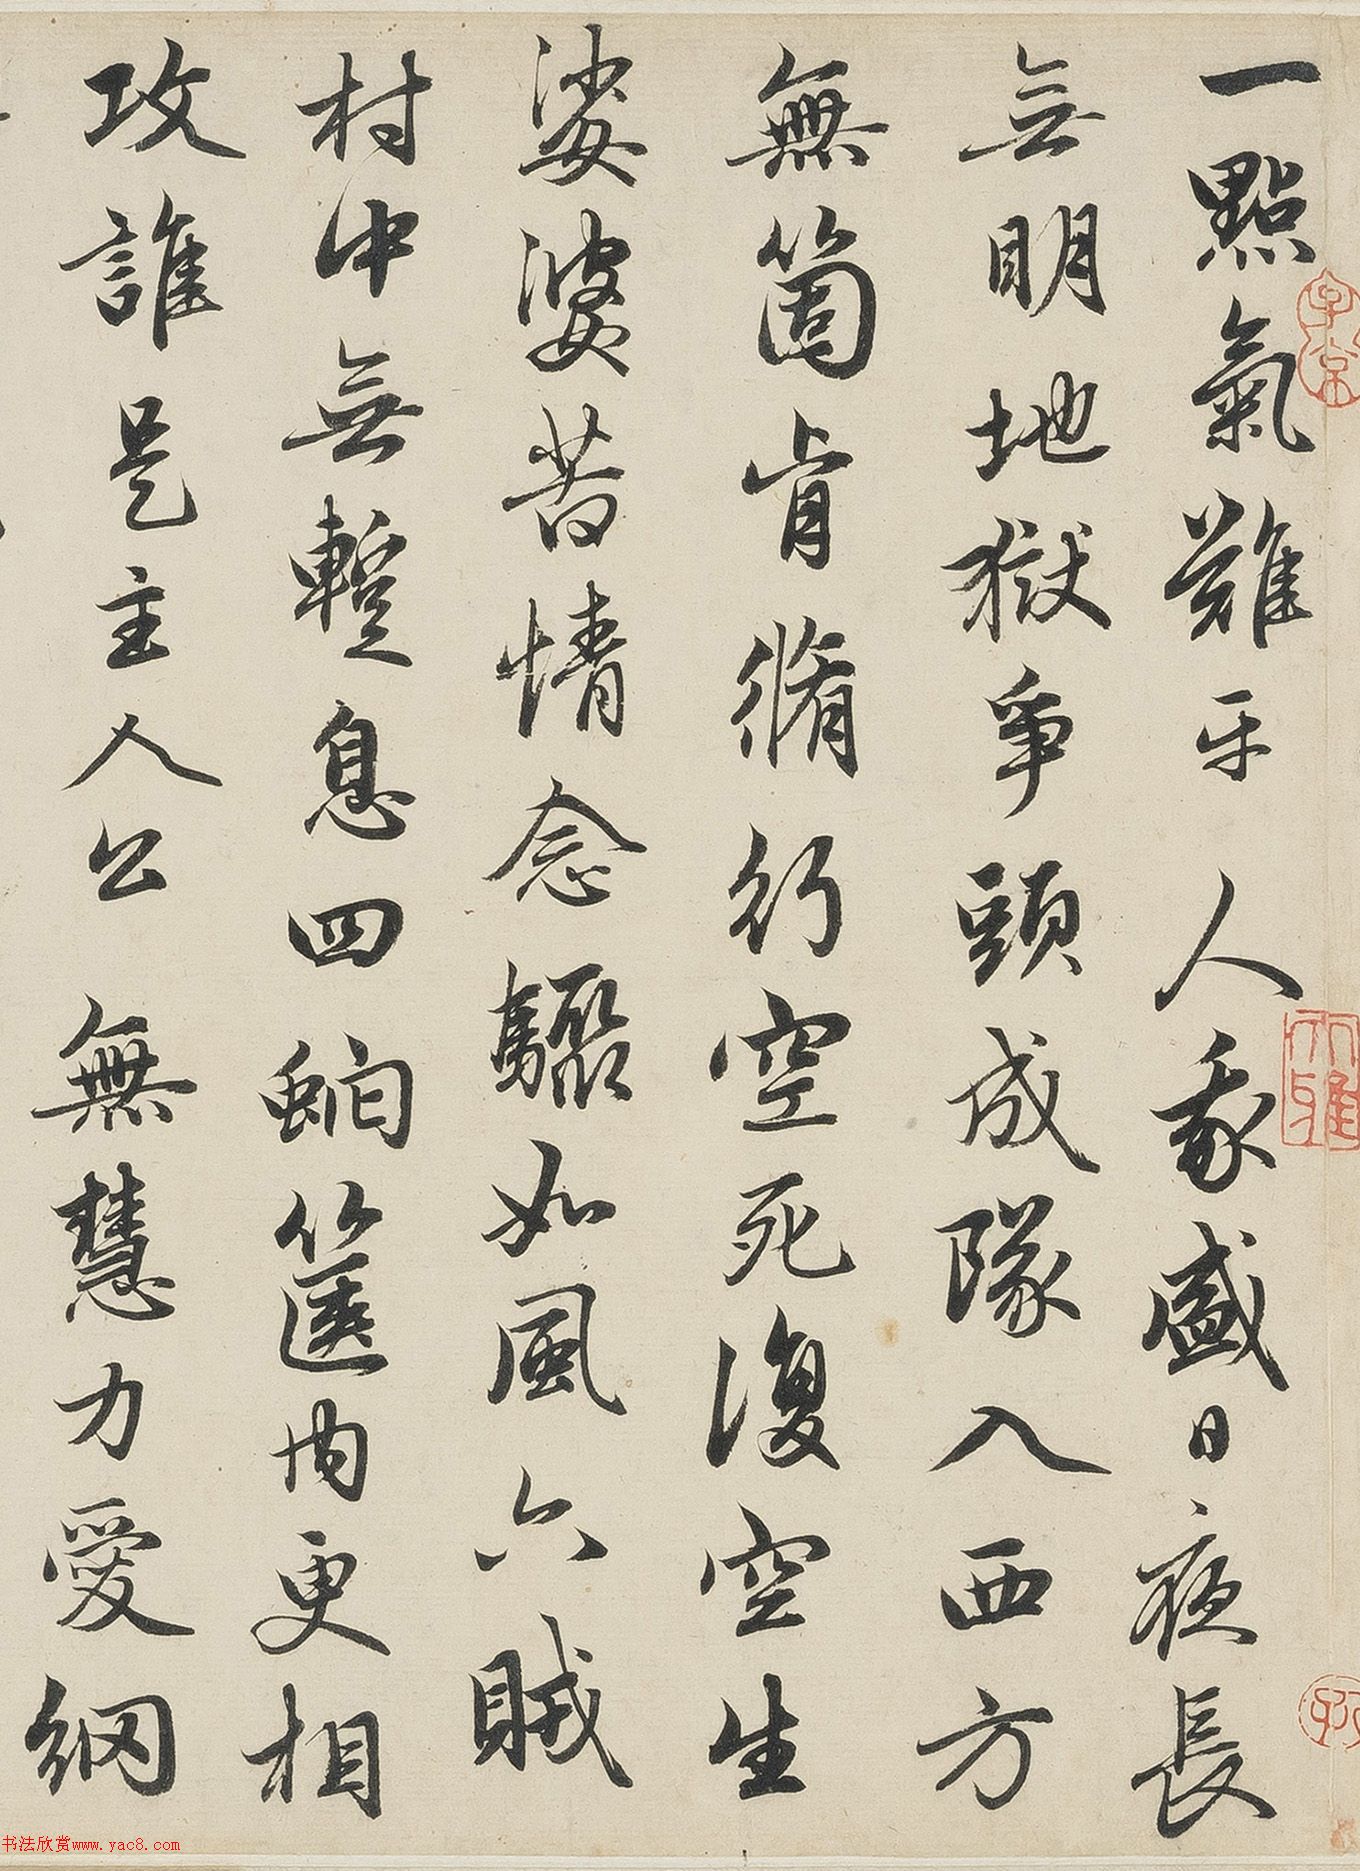 一點氣難平人我盛日夜長
無明地獄爭頭成隊入西方
無箇肯脩行空死復空生
娑婆苦情念驟如風六賊
村中無蹔息四蛇篋內更相
攻誰是主人公無慧力愛網
书法欣赏www.yac8.com